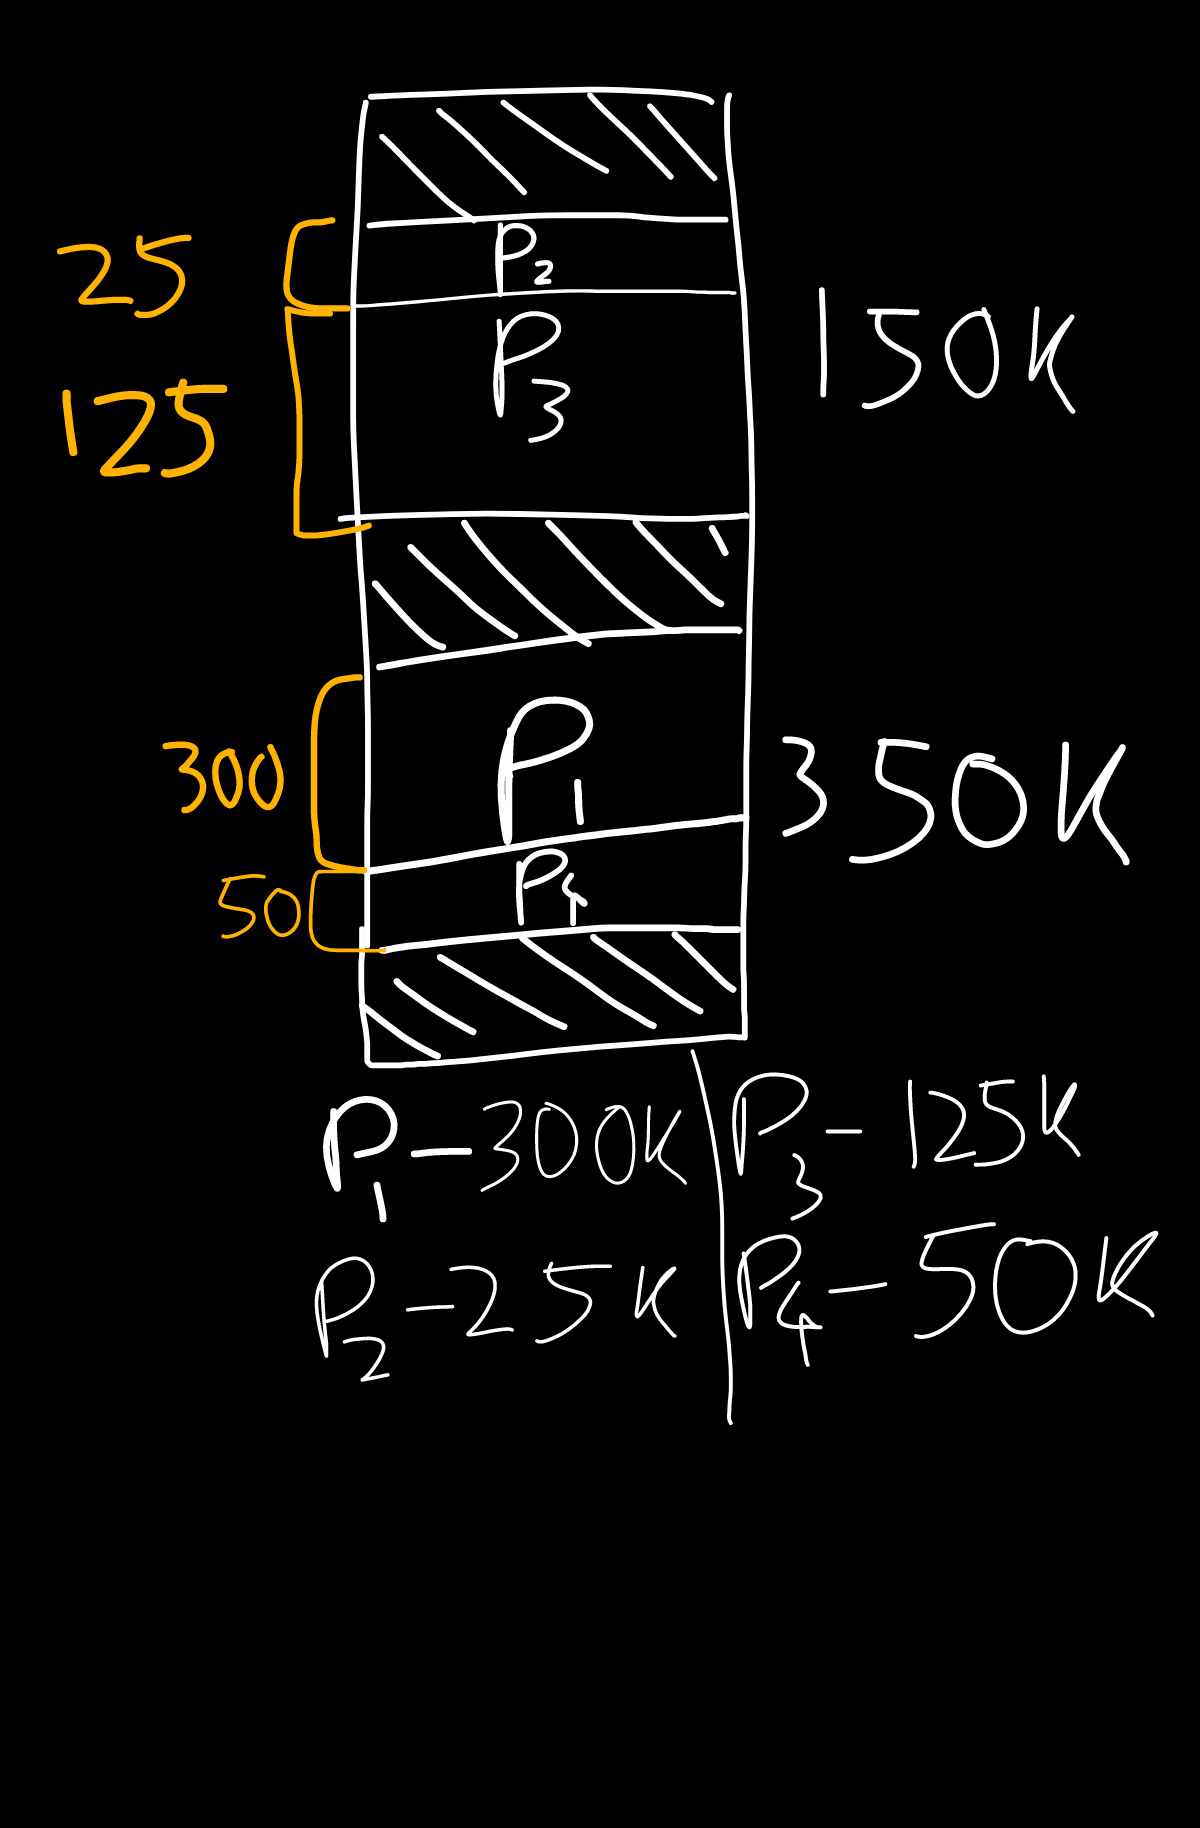 25
P2
125
P3
150K
300
P1
350K
50
P4
P1-300K
P3-125K
P2-25K
P4-50K